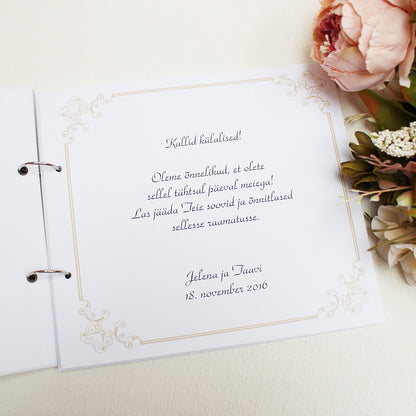 Kallid külalised!
Oleme õnnelikud, et olete
sellel tähtsal päeval meiega!
Las jääda Teie soovid ja õnnitlused
sellesse raamatusse.
Jelena ja Taavi
18. november 2016